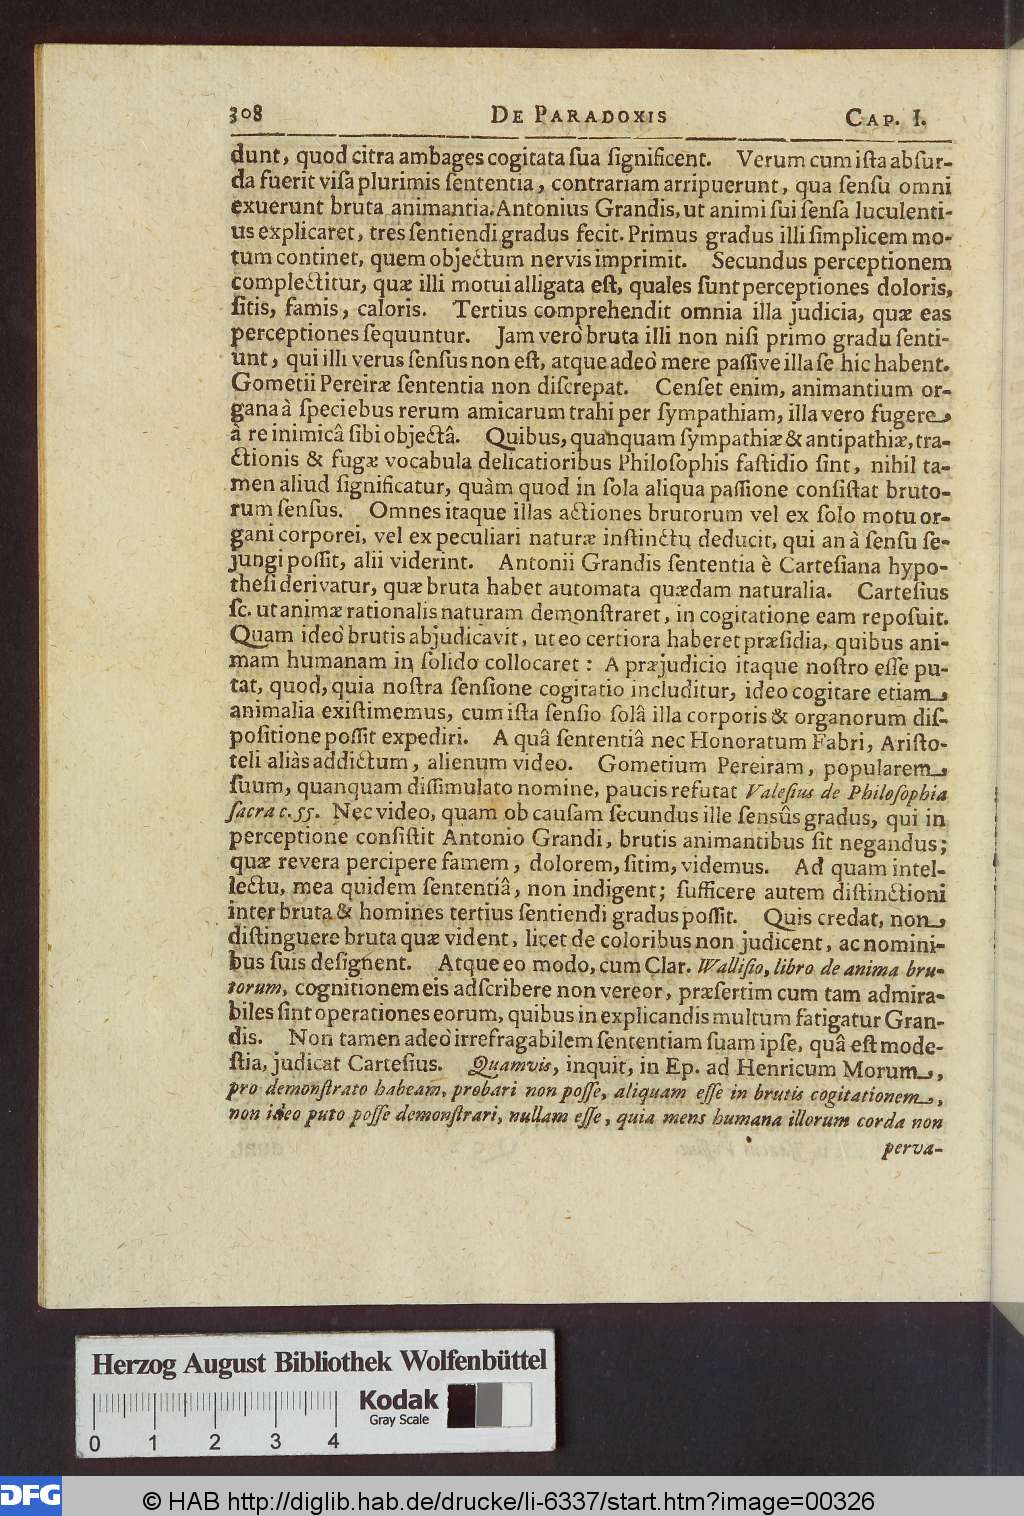 308 DE PARADOXIS CAP. I.
dunt, quod citra ambages cogitata ſua ſignificent. Verum cum iſta abſur-
da fuerit viſa plurimis ſententia, contrariam arripuerunt, qua ſenſu omni
exuerunt bruta animantia. Antonius Grandis, ut animi ſui ſenſa luculenti-
us explicaret, tres ſentiendi gradus fecit. Primus gradus illi ſimplicem mo-
tum continet, quem objectum nervis imprimit. Secundus perceptionem
complectitur, quæ illi motui alligata eſt, quales ſunt perceptiones doloris,
ſitis, famis, caloris. Tertius comprehendit omnia illa judicia, quæ eas
perceptiones ſequuntur. Jam verò bruta illi non niſi primo gradu ſenti-
unt, qui illi verus ſenſus non eſt, atque adeò mere paſſive illa ſe hic habent.
Gometii Pereiræ ſententia non diſcrepat. Cenſet enim, animantium or-
gana à ſpeciebus rerum amicarum trahi per ſympathiam, illa vero fugere
à re inimicâ ſibi objectâ. Quibus, quanquam ſympathiæ & antipathiæ, tra-
ctionis & fugæ vocabula delicatioribus Philoſophis faſtidio ſint, nihil ta-
men aliud ſignificatur, quàm quod in ſola aliqua paſſione conſiſtat bruto-
rum ſenſus. Omnes itaque illas actiones brutorum vel ex ſolo motu or-
gani corporei, vel ex peculiari naturæ inſtinctu deducit, qui an à ſenſu ſe-
jungi poſſit, alii viderint. Antonii Grandis ſententia è Carteſiana hypo-
theſi derivatur, quæ bruta habet automata quædam naturalia. Carteſius
ſc. ut animæ rationalis naturam demonſtraret, in cogitatione eam repoſuit.
Quam ideò brutis abjudicavit, ut eo certiora haberet præſidia, quibus ani-
mam humanam in ſolido collocaret: A præjudicio itaque noſtro eſſe pu-
tat, quod, quia noſtra ſenſione cogitatio includitur, ideo cogitare etiam
animalia exiſtimemus, cum iſta ſenſio ſolâ illa corporis & organorum diſ-
poſitione poſſit expediri. A quâ ſententiâ nec Honoratum Fabri, Ariſto-
teli aliàs addictum, alienum video. Gometium Pereiram, popularem
ſuum, quanquam diſſimulato nomine, paucis refutat Valeſius de Philoſophia
ſacra c. 55. Nec video, quam ob cauſam ſecundus ille ſensûs gradus, qui in
perceptione conſiſtit Antonio Grandi, brutis animantibus ſit negandus;
quæ revera percipere famem, dolorem, ſitim, videmus. Ad quam intel-
lectu, mea quidem ſententiâ, non indigent; ſufficere autem diſtinctioni
inter bruta & homines tertius ſentiendi gradus poſſit. Quis credat, non
diſtinguere bruta quæ vident, licet de coloribus non judicent, ac nomini-
bus ſuis deſignent. Atque eo modo, cum Clar. Walliſio, libro de anima bru-
torum, cognitionem eis adſcribere non vereor, præſertim cum tam admira-
biles ſint operationes eorum, quibus in explicandis multum fatigatur Gran-
dis. Non tamen adeò irrefragabilem ſententiam ſuam ipſe, quâ eſt mode-
ſtia, judicat Carteſius. Quamvis, inquit, in Ep. ad Henricum Morum,
pro demonſtrato habeam, probari non poſſe, aliquam eſſe in brutis cogitationem,
non ideo puto poſſe demonſtrari, nullam eſſe, quia mens humana illorum corda non
perva-
Herzog August Bibliothek Wolfenbüttel
Kodak
Gray Scale
0 1 2 3 4
DFG
© HAB http://diglib.hab.de/drucke/li-6337/start.htm?image=00326